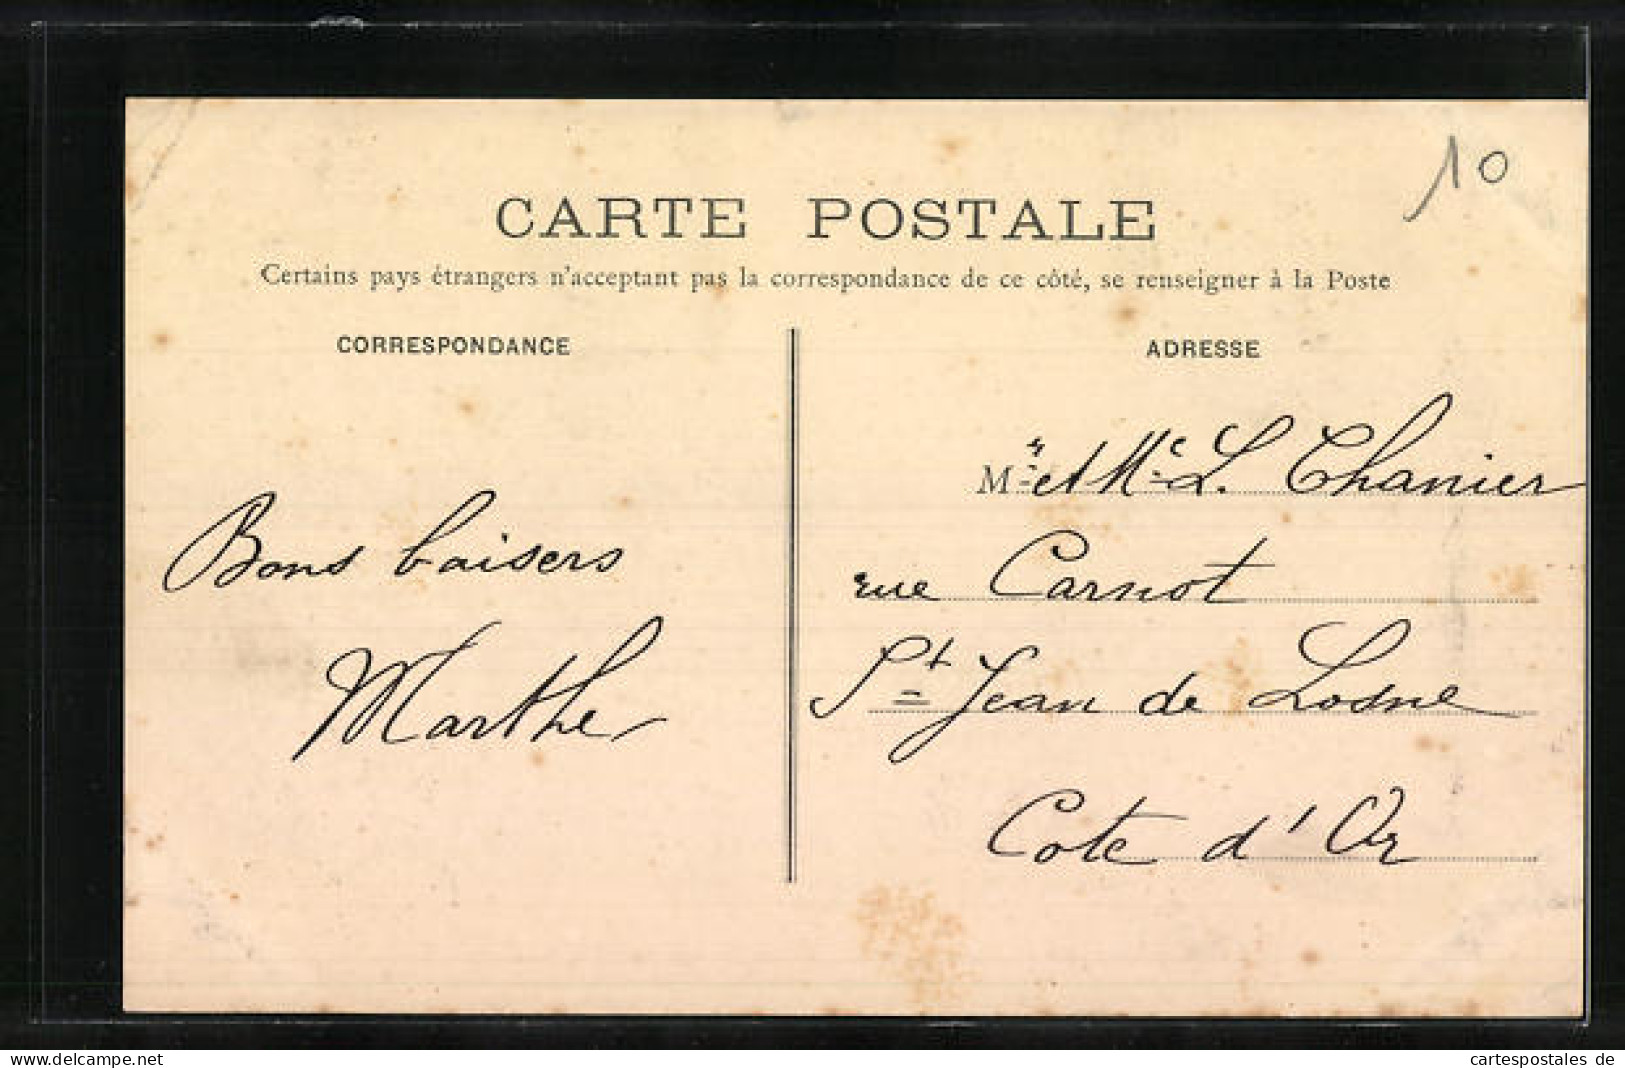 10
CARTE POSTALE
Certains pays étrangers n'acceptant pas la correspondance de ce côté, se renseigner à la Poste
CORRESPONDANCE
Bons baisers
Marthe
ADRESSE
Mr et Me L. Chanier
rue Carnot
St Jean de Losne
Cote d'Or
www.ak-ansichtskarten.de
cartespostales de